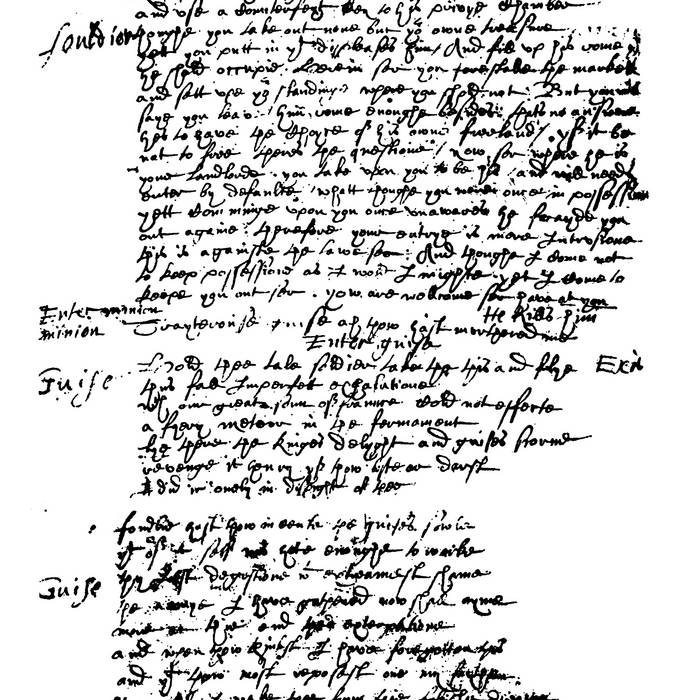 and vse a Counterfeyt key to his privye Chamber
souldier thoughe you take out none but yor owne treasure
yett you putt in yt displeases him / And fill vp his rome yt
he shold occupie. Herein ser you forestalle the markett
and sett vpe yor standinge where you shold not: But you will
saye you leave him rome enoughe besides: thats no answere
hes to have the Choyce of his owne freeland / yf it be
not to free theres the questione / now ser where he is
your landlorde. you take vpon you to be his / and will needs
enter by defaulte / whatt thoughe you were once in possession
yett Comminge vpon you once vnawares he frayde you
out againe. therefore your entrye is mere Intrvsione
this is againste the lawe ser: And thoughe I Come not
to keep possessione as I wold I mighte yet I Come to
keepe you out ser. yow are wellcome ser have at you
Enter minion He Kills him
minion Trayterouse guise ah thow hast myrthered me
Enter guise
Guise Hold thee tale soldier take the this and flye Exit
thus fall Imperfett exhalatione
wch our great sonn of fraunce Cold not effecte
a fyery meteor in the fermament
lye there the Kinges delyght and guises scorne
revenge it henry yf thow liste or darst
I did it onely in dispight of thee
fondlie hast thow in Censte the guises sowle
yt of it self was hote enoughe to worke
Guise thy Just degestione wth extreamest shame
the armye I have gathered now shall ayme
more at thie end then exterpatione
and when thow thinkst I have foregotten this
and yt thow most reposest one my faythe